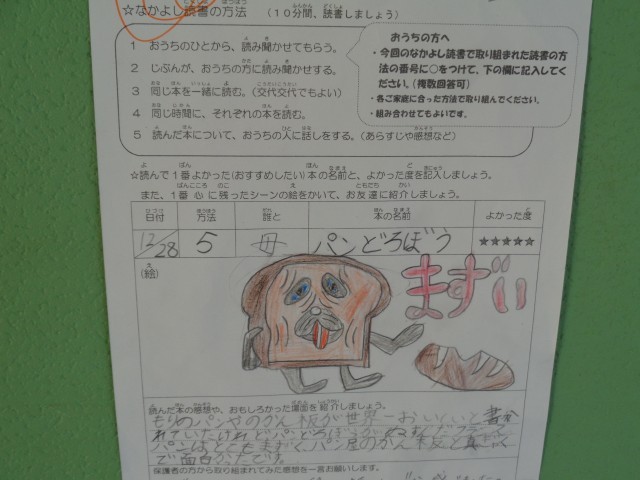 ☆なかよし読書の方法 (10分間、読書しましょう)
1 おうちのひとから、読み聞かせてもらう。
2 じぶんが、おうちの方に読み聞かせする。
3 同じ本を一緒に読む。(交代交代でもよい)
4 同じ時間に、それぞれの本を読む。
5 読んだ本について、おうちの人に話しをする。(あらすじや感想など)
おうちの方へ
・今回のなかよし読書で取り組まれた読書の方
法の番号に○をつけて、下の欄に記入してく
ださい。(複数回答可)
・各ご家庭に合った方法で取り組んでください。
・組み合わせてもよいです。
☆読んで1番よかった(おすすめしたい)本の名前と、よかった度を記入しましょう。
また、1番心に残ったシーンの絵をかいて、お友達に紹介しましょう。
日付 方法 誰と 本の名前 よかった度
12/28 5 母 パンどろぼう ★★★★★
(絵)
まずい
読んだ本の感想や、おもしろかった場面を紹介しましょう。
もりのパンやのかん板が世界一おいしいと書か
れていたけれどパンどろぼうが
パンはとてもまずくパン屋のかん板と
で面白かったです。
保護者の方から取り組まれてみた感想を一言お願いします。